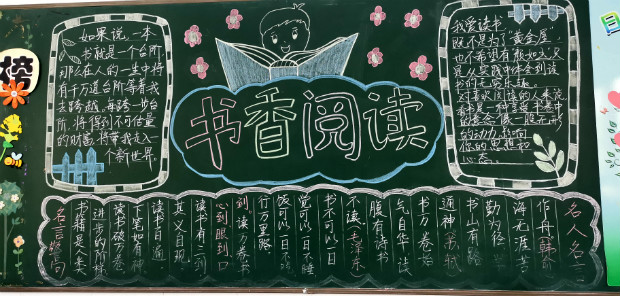 如果说，一本
书就是一个台阶
那么在人的一生中将
有千万道台阶等着我
去跨越，每跨一步台
阶，将得到不可估量
的财富，将带我走入一
个新世界。
书香阅读
我爱读书，
既不是为了"黄金屋"
也不希望有"颜如玉"只
是从实践中体会到读
书的
的动力，影响
你的思想和
心态。
名人名言
作舟
海无涯苦
勤为径 学
书山有路
通神
书万卷始
气自华 读
腹有诗书
不读
书不可以一日
觉可以一日不睡
饭可以一日不吃
行万里路
读万卷书
心到眼到口
读书有三到
其义自现
读书百遍
下笔如有神
读书破万卷
进步的阶梯
书籍是人类
名言警句
榜